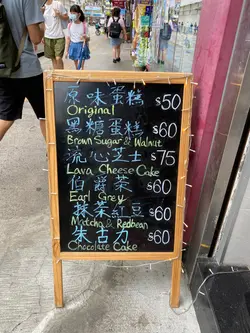 原味蛋糕 $50
Original
黑糖蛋糕 $60
Brown Sugar & Walnut
流心芝士 $75
Lava Cheese Cake
伯爵茶 $60
Earl Grey
抹茶紅豆 $60
Matcha & Redbean
朱古力 $60
Chocolate Cake